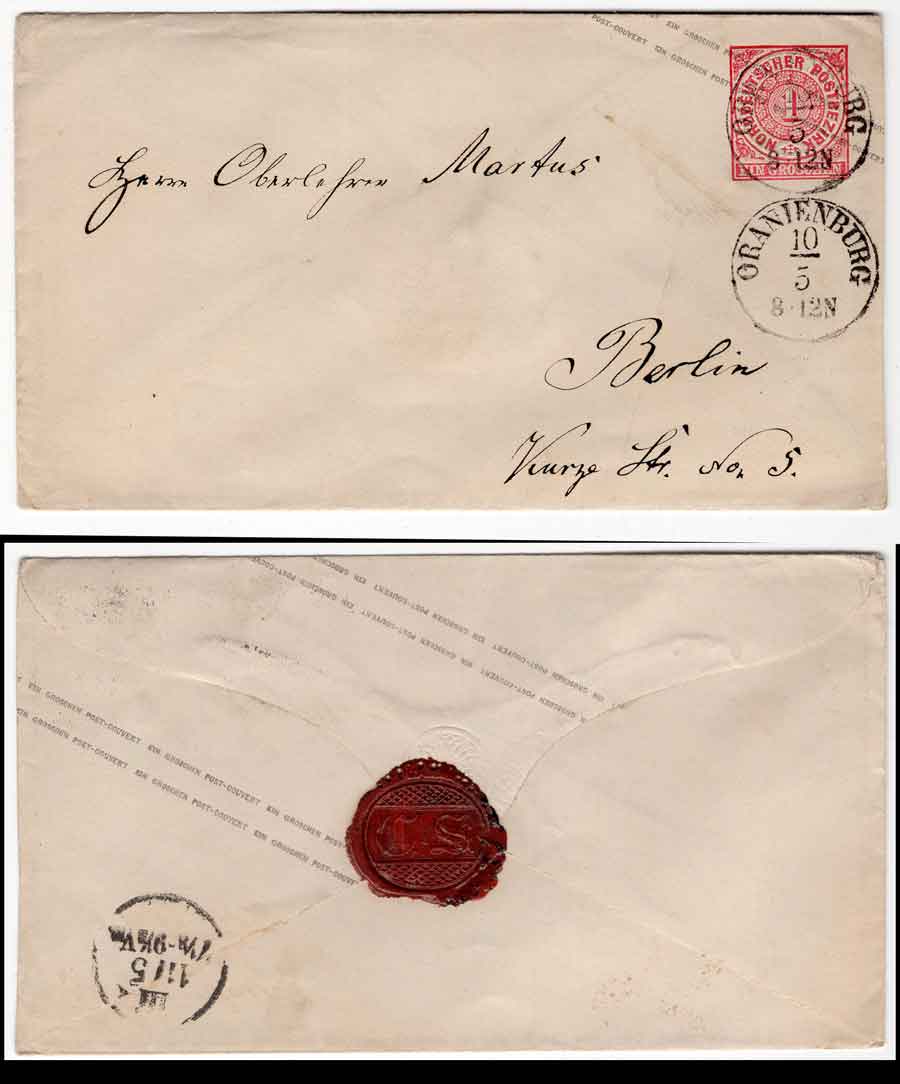 POST-COUVERT EIN GROSCHEN POST
EIN GROSCHEN
NORDDEUTSCHER POSTBEZIRK
1
EIN GROSCHEN
5
8-12N
Herrn Oberlehrer Martus
ORANIENBURG
10
5
8-12N
Berlin
Kurze Str. No. 5.
EIN GROSCHEN POST-COUVERT EIN GROSCHEN POST-COUVERT EIN GROSCHEN
POST-COUVERT EIN GROSCHEN POST-COUVERT EIN GROSCHEN POST-COUVERT
EIN GROSCHEN POST-COUVERT EIN GROSCHEN POST-COUVERT EIN GROSCHEN POST-
EIN GROSCHEN POST-COUVERT EIN GROSCHEN POST-COUVERT EIN GROSCHEN POST-COUVERT
C S
III
11/5